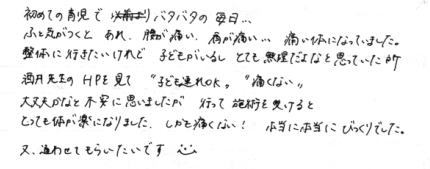 初めての育児で バタバタの毎日...
ふと気がつくと あれ、腰が痛い、肩が痛い... 痛い体になっていました。
整体に行きたいけれど 子どもがいるし とても無理だよなと思っていた所
満月先生のHPを見て "子ども連れOK。 "痛くない。"
大丈夫かなと不安に思いましたが 行って施術を受けると
とっても体が楽になりました。しかも痛くない! 本当に本当にびっくりでした。
又、通わせてもらいたいです